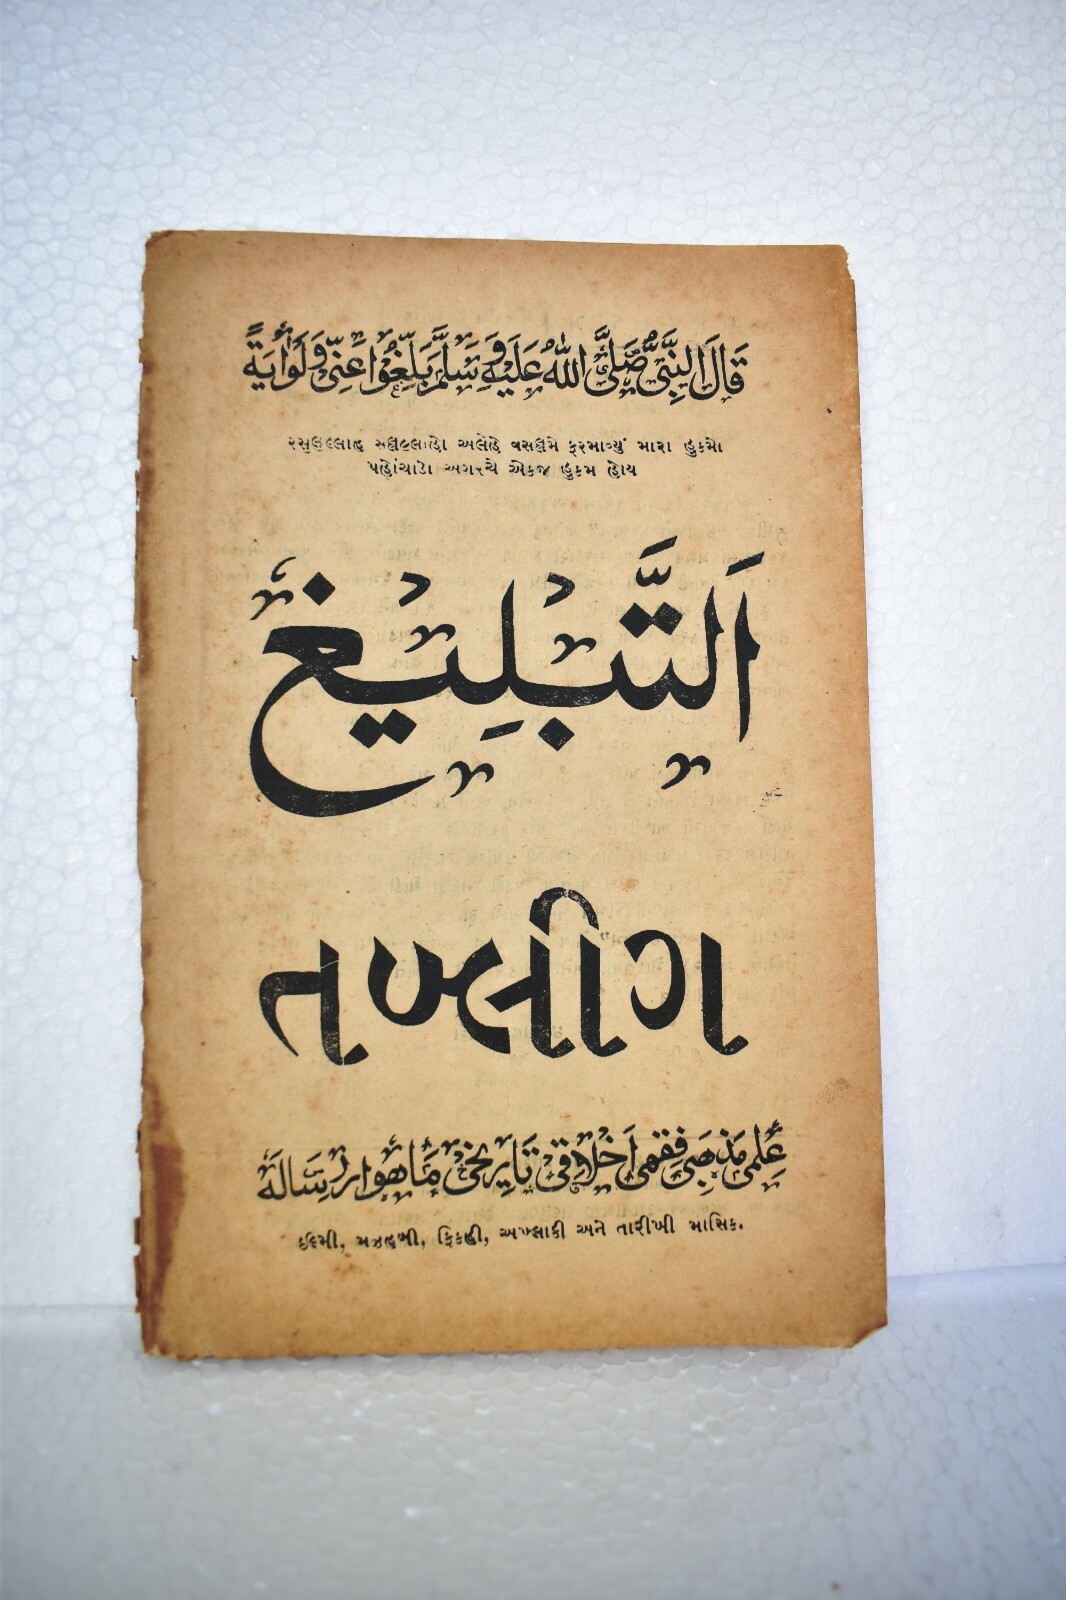 قَالَ النَّبِيُّ صَلَّى اللهُ عَلَيْهِ وَسَلَّمَ بَلِّغُوا عَنِّي وَلَوْ آيَةً
રસુલુલ્લાહ સલ્લલ્લાહો અલેહે વસલ્લમે ફરમાવ્યું મારા હુકમો
પહોંચાડો અગરચે એકજ હુકમ હોય
اَلتَّبْلِيْغ
તબ્લીગ
عِلمی مَذہبی فقہی اَخلاقی تَاریخی مَاہوار رِسَالہ
ઇલ્મી, મઝહબી, ફિકહી, અખ્લાકી અને તારીખી માસિક.